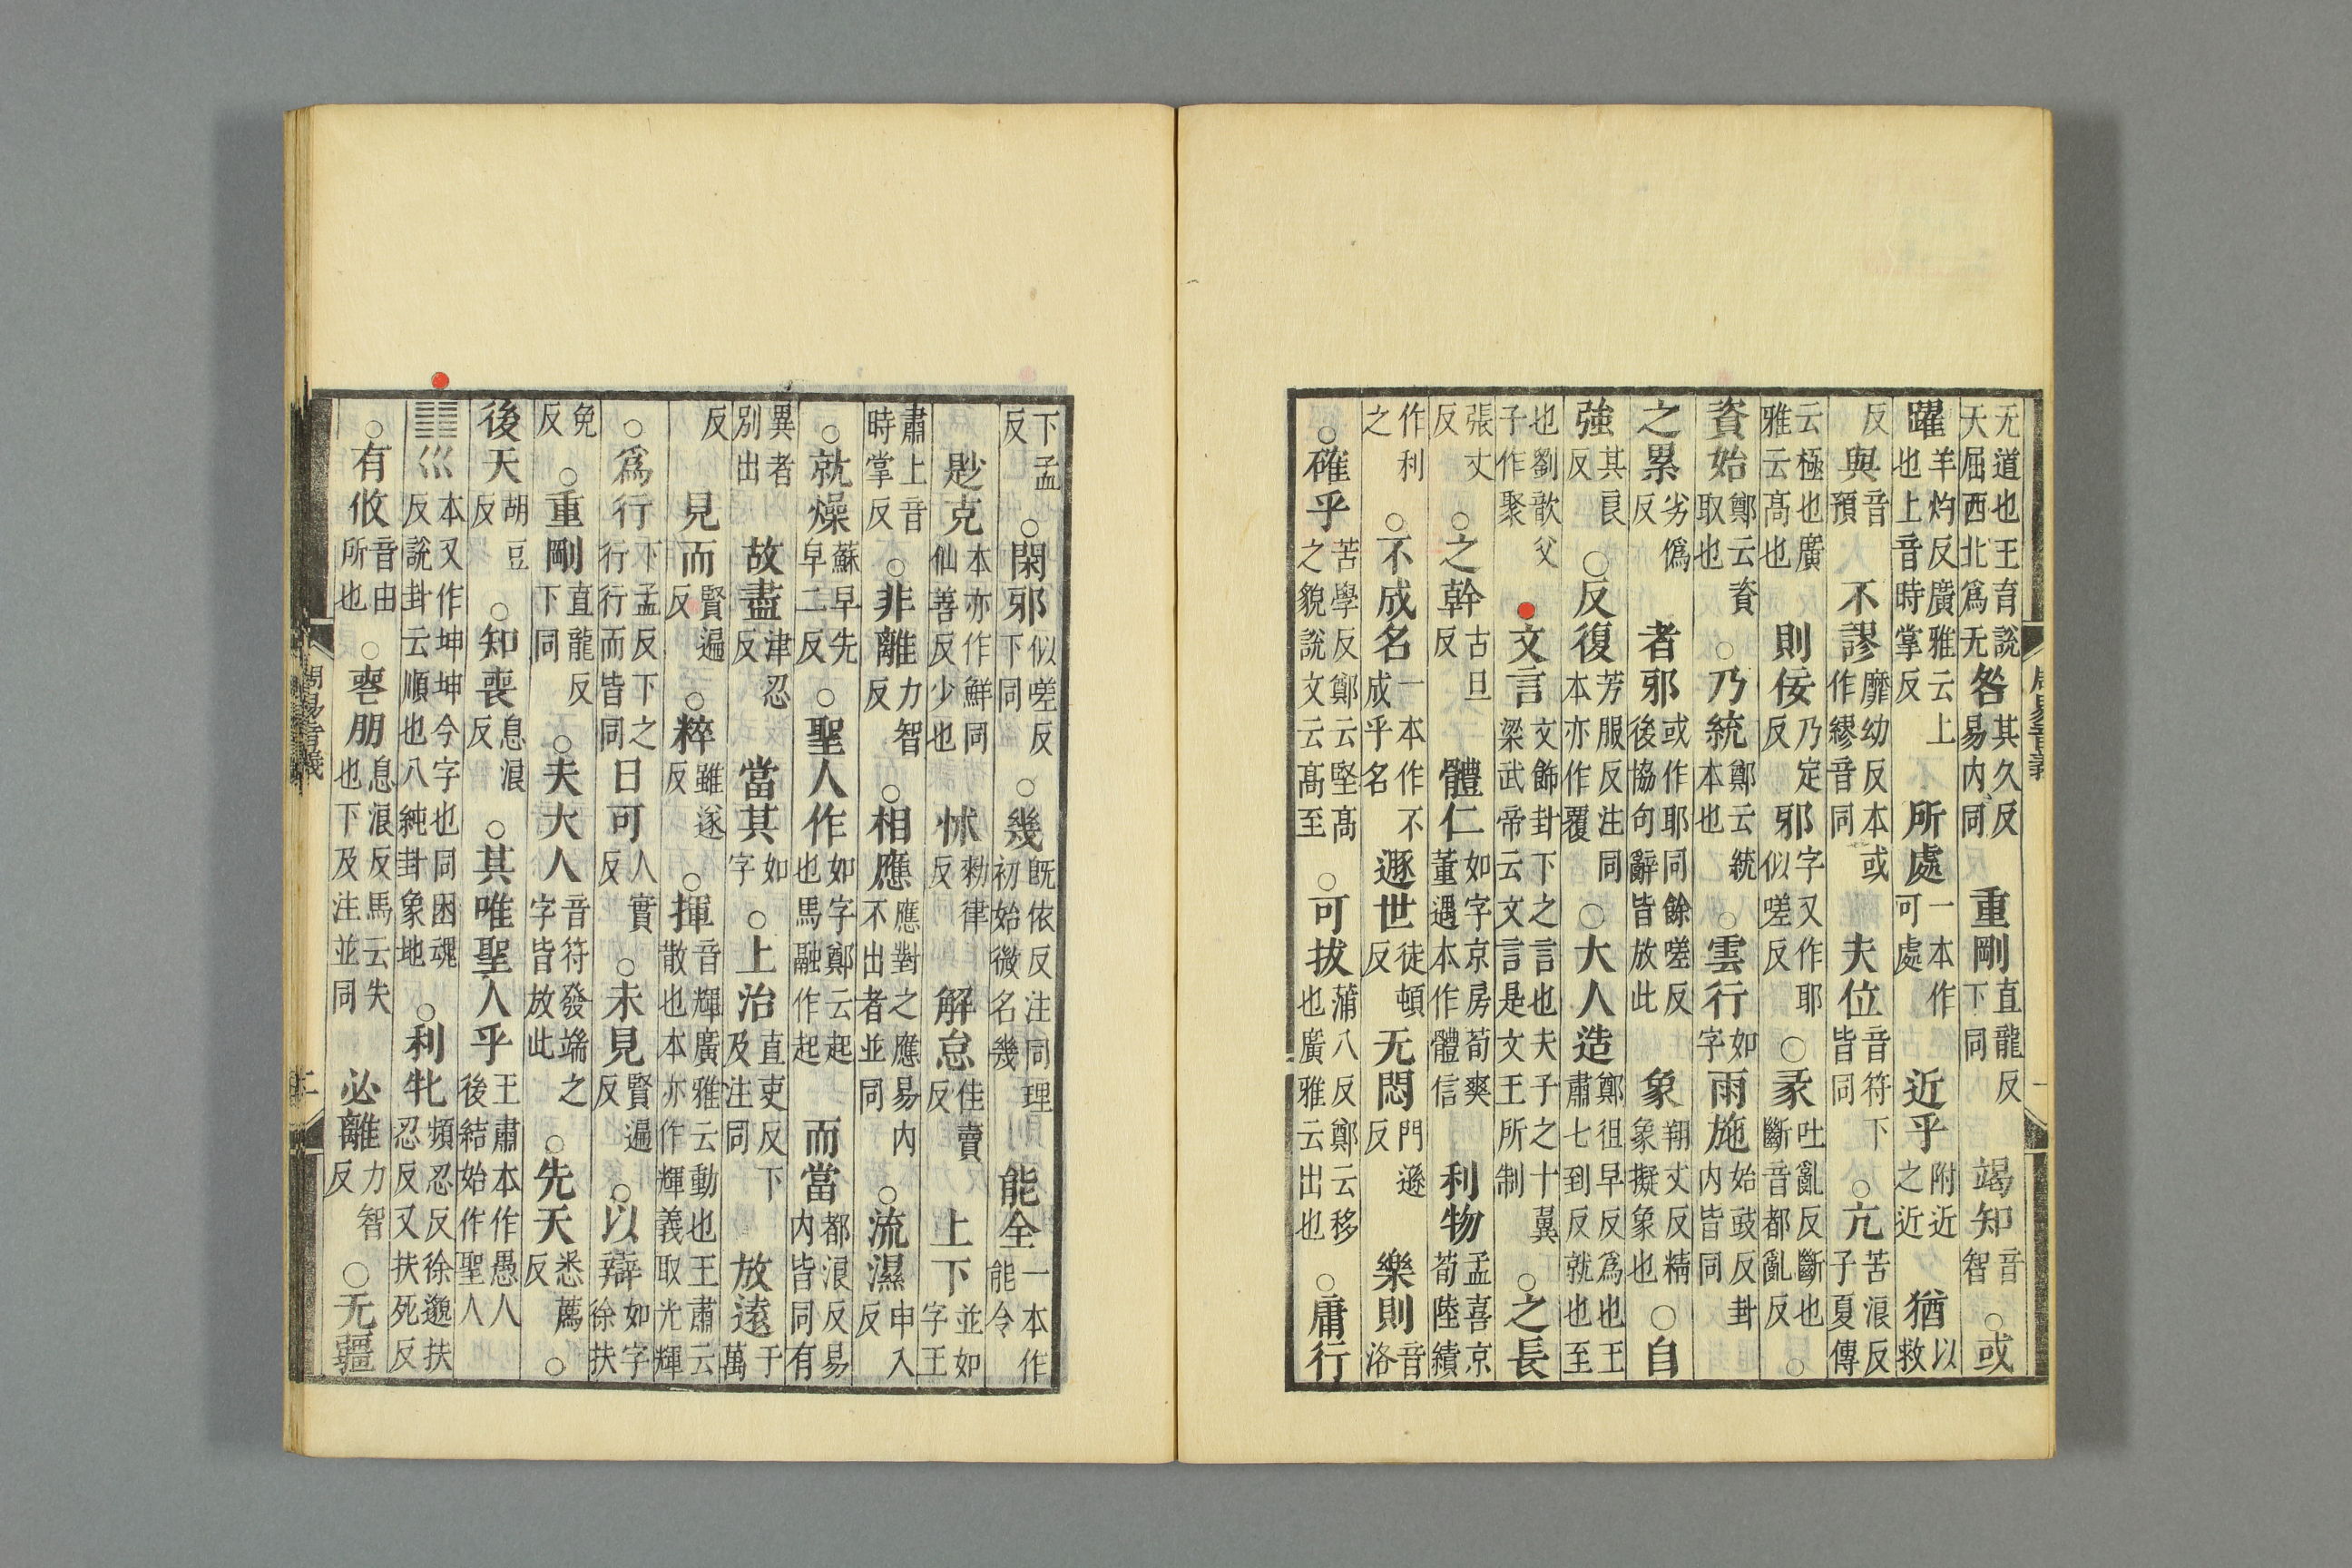 无道也王育說天屈西北爲无咎其久反易內同重剛直龍反下同竭知音智○或
躍羊灼反廣雅云上也上音時掌反所處一本作可處近乎附近之近猶以救
反與音預不謬靡幼反本或作繆音同夫位音符下皆同○亢苦浪反子夏傳
云極也廣雅云髙也則佞乃定反邪字又作耶似嗟反○彖吐亂反斷也斷音都亂反○
資始鄭云資取也○乃統鄭云統本也○雲行如字雨施始豉反卦內皆同
之累劣僞反者邪或作耶同餘嗟反後協句辭皆放此象翔丈反精象擬象也○自
強其良反○反復芳服反注同本亦作覆○大人造鄭徂早反爲也王肅七到反就也至
也劉歆父子作聚文言文飾卦下之言也夫子之十翼梁武帝云文言是文王所制○之長
張丈反○之幹古旦反體仁如字京房荀爽董遇本作體信利物孟喜京荀陸績
作利之○不成名一本作不成乎名遯世徒頓反无悶門遜反樂則音洛
○確乎苦學反鄭云堅髙之貌說文云髙至○可拔蒲八反鄭云移也廣雅云出也○庸行
下孟反○閑邪似嗟反下同○幾既依反注同理初始微名幾能全一本作能令
尟克本亦作鮮同仙善反少也怵勑律反解怠佳賣反上下並如字王
肅上音時掌反○非離力智反○相應應對之應易內不出者並同○流濕申入反
○就燥蘇早先皁二反○聖人作如字鄭云起也馬融作起而當都浪反易內皆同有
異者別出故盡津忍反當其如字○上治直吏反下及注同放遠于萬
反見而賢遍反○粹雖遂反○揮音輝廣雅云動也王肅云散也本亦作輝義取光輝
○爲行下孟反下之行行而皆同日可人實反○未見賢遍反○以辯如字徐扶
免反○重剛直龍反下同○夫大人音符發端之字皆放此○先天悉薦反○
後天胡豆反○知喪息浪反○其唯聖人乎王肅本作愚人後結始作聖人
䷁巛本又作坤坤今字也同困魂反說卦云順也八純卦象地○利牝頻忍反徐邈扶忍反又扶死反
○有攸音由所也○喪朋息浪反馬云失也下及注並同必離力智反○无疆
周易音義